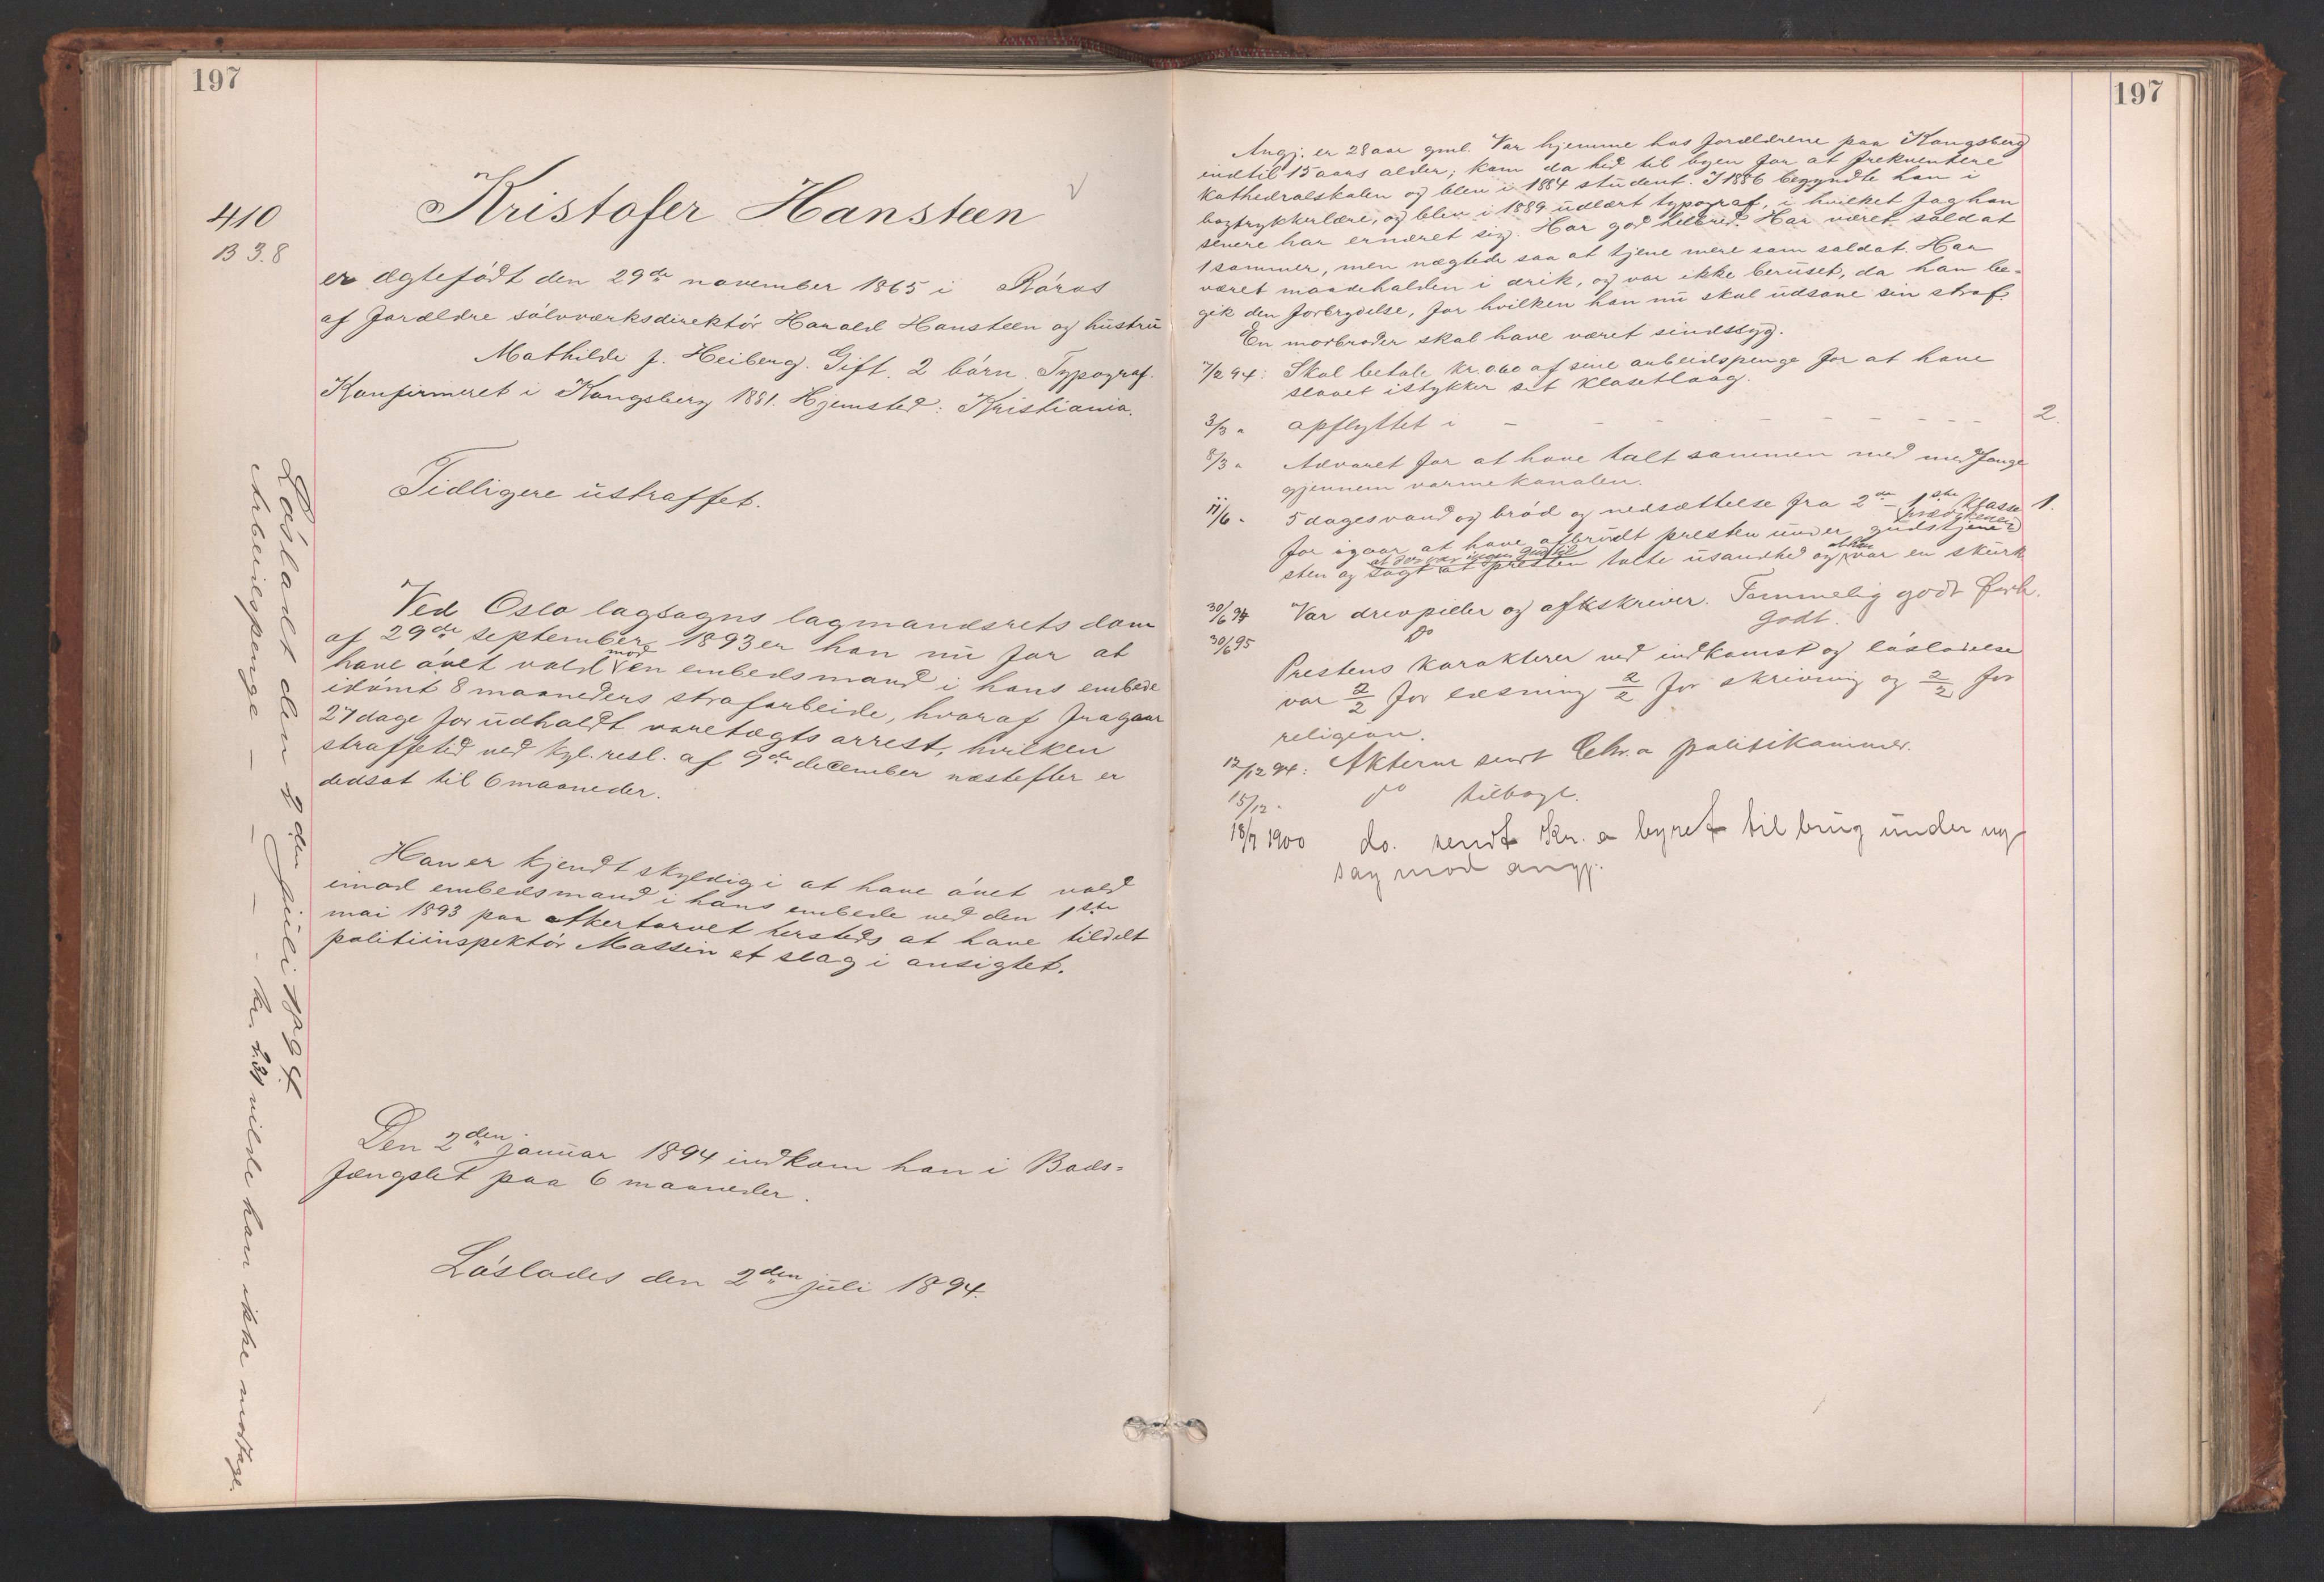 197
410
B 3.8
Kristofer Hansteen
er ægtefödt den 29de november 1865 i Röros
af forældre sölvværksdirektör Harald Hansteen og hustru
Mathilde f. Heiberg. Gift. 2 börn. Typograf.
Konfirmeret i Kongsberg 1881. Hjemsted: Kristiania.
Tidligere ustraffet.
Ved Oslo lagsogns lagmandsrets dom
af 29de september 1893 er han nu for at
have övet vold mod en embedsmand i hans embede
idömt 8 maaneders strafarbeide, hvoraf fragaar
27 dage for udholdt varetægts arrest, hvilken
straffetid ved kgl. resl. af 9de december næstefter er
nedsat til 6 maaneder.
Han er kjendt skyldig i at have övet vold
imod embedsmand i hans embede ved den 1ste
mai 1893 paa Akertorvet hersteds at have tildelt
politiinspektör Massin et slag i ansigtet.
Den 2den januar 1894 indkom han i Bods-
fængslet paa 6 maaneder.
Löslades den 2den juli 1894.
Lösladt den 2den juli 1894.
Arbeidspenge – – – - kr. 2.31 vilde han ikke modtage.
197
Angj. er 28 aar gml. Var hjemme hos forældrene paa Kongsberg
indtil 15 aars alder; kom da hid til byen for at frekventere
Kathedralskolen og blev i 1884 student. I 1886 begyndte han i
bogtrykkerlære, og blev i 1889 udlært typograf, i hvilket fag han
senere har ernæret sig. Har god helbred. Har været soldat
1 sommer, men nægtede saa at tjene mere som soldat. Har
været maadeholden i drik, og var ikke beruset, da han be-
gik den forbrydelse, for hvilken han nu skal udsone sin straf.
En morbroder skal have været sindssyg.
7/2 94: Skal betale kr. 0.60 af sine arbeidspenge for at have
slaaet istykker sit klosetlaag.
3/3 " opflyttet i – – – – – – – – 2.
8/3 " Advaret for at have talt sammen med medfange
gjennem varmekanalen.
11/6 - 5 dages vand og bröd og nedsættelse fra 2de – 1ste klasse 1.
for igaar at have afbrudt presten under prædikenen gudstjene-
sten og sagt at der var ingen Gud til at presten talte usandhed og at han var en skurk.
30/6 94 Var drevpiller og afskriver. Temmelig godt Forh.
30/6 95 Do godt.
Prestens karakterer ved indkomst og lösladelse
var 2/2 for læsning 2/2 for skrivning og 2/2 for
religion.
12/12 94: Akterne sendt Chr.a politikammer.
15/12 - do tilbage.
18/7 1900 do. sendt Kr.a byret til brug under ny
sag mod angj.